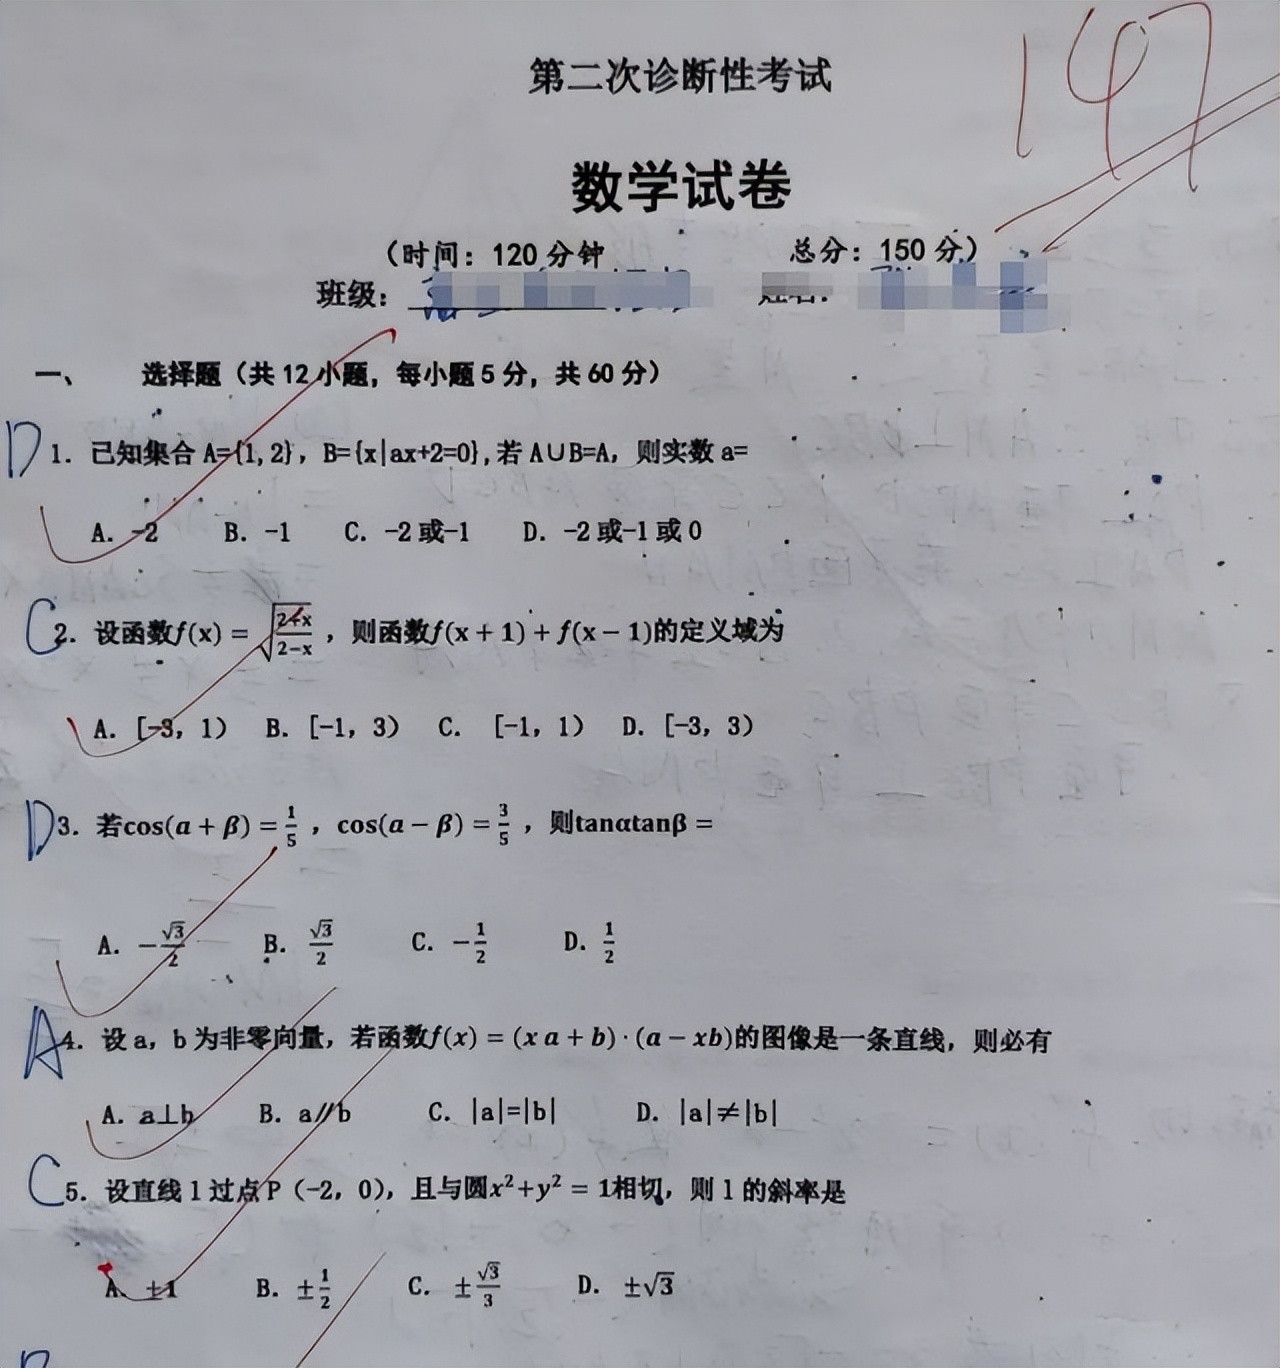 147
第二次诊断性考试
数学试卷
（时间：120分钟 总分：150分）
班级： 姓名：
一、 选择题（共12小题，每小题5分，共60分）
D 1. 已知集合A={1,2}，B={x|ax+2=0},若A∪B=A，则实数a=
A. -2 B. -1 C. -2或-1 D. -2或-1或0
C 2. 设函数f(x) = √((2+x)/(2-x))，则函数f(x + 1) + f(x - 1)的定义域为
A. [-3, 1） B. [-1, 3） C. [-1, 1） D. [-3, 3）
D 3. 若cos(α + β) = 1/5，cos(α - β) = 3/5，则tanαtanβ =
A. -√3/2 B. √3/2 C. -1/2 D. 1/2
A 4. 设a，b为非零向量，若函数f(x) = (x a + b) · (a - xb)的图像是一条直线，则必有
A. a⊥b B. a∥b C. |a|=|b| D. |a|≠|b|
C 5. 设直线l过点P（-2，0），且与圆x²+y² = 1相切，则l的斜率是
A. ±1 B. ±1/2 C. ±√3/3 D. ±√3